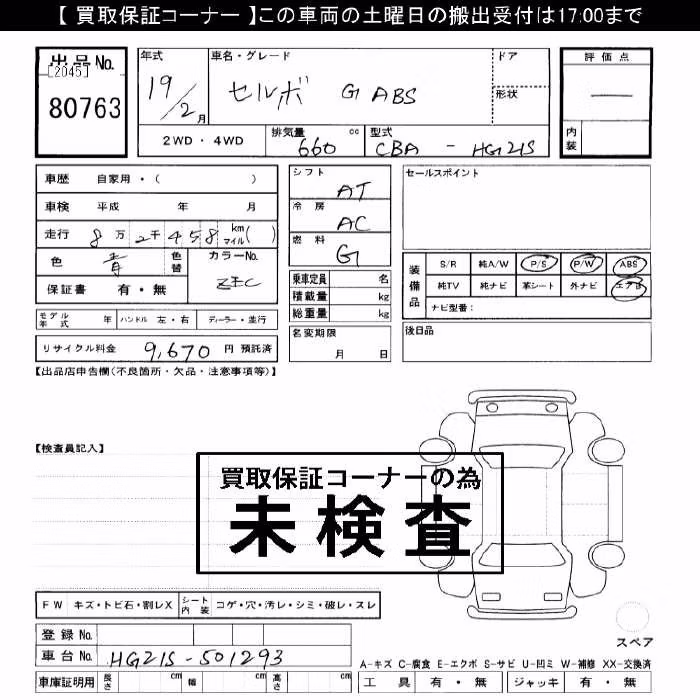 【 買取保証コーナー 】この車両の土曜日の搬出受付は17:00まで
出品No.
[2045]
80763
年式 車名・グレード ドア
19/2月 セルボ G ABS 形状
2WD・4WD 排気量 660 cc 型式 CBA - HG21S
評価点
—
内装
車歴 自家用・( )
車検 平成 年 月
走行 8万2千458 km マイル( )
色 青 色替 カラーNo. ZFC
保証書 有・無
モデル年式 年 ハンドル 左・右 ディーラー・並行
リサイクル料金 9,670 円 預託済
シフト AT
冷房 AC
燃料 G
乗車定員 名
積載量 kg
総重量 kg
名変期限
月 日
セールスポイント
装備品 S/R 純A/W P/S P/W ABS
純TV 純ナビ 革シート 外ナビ エアB
ナビ型番：
後日品
【出品店申告欄(不良箇所・欠品・注意事項等)】
【検査員記入】
買取保証コーナーの為
未検査
FW キズ・トビ石・割レX シート内装 コゲ・穴・汚レ・シミ・破レ・スレ
登録No.
車台No. HG21S-501293
車庫証明用 長さ cm 幅 cm 高さ cm
スペア
A-キズ C-腐食 E-エクボ S-サビ U-凹ミ W-補修 XX-交換済
工具 有・無 ジャッキ 有・無